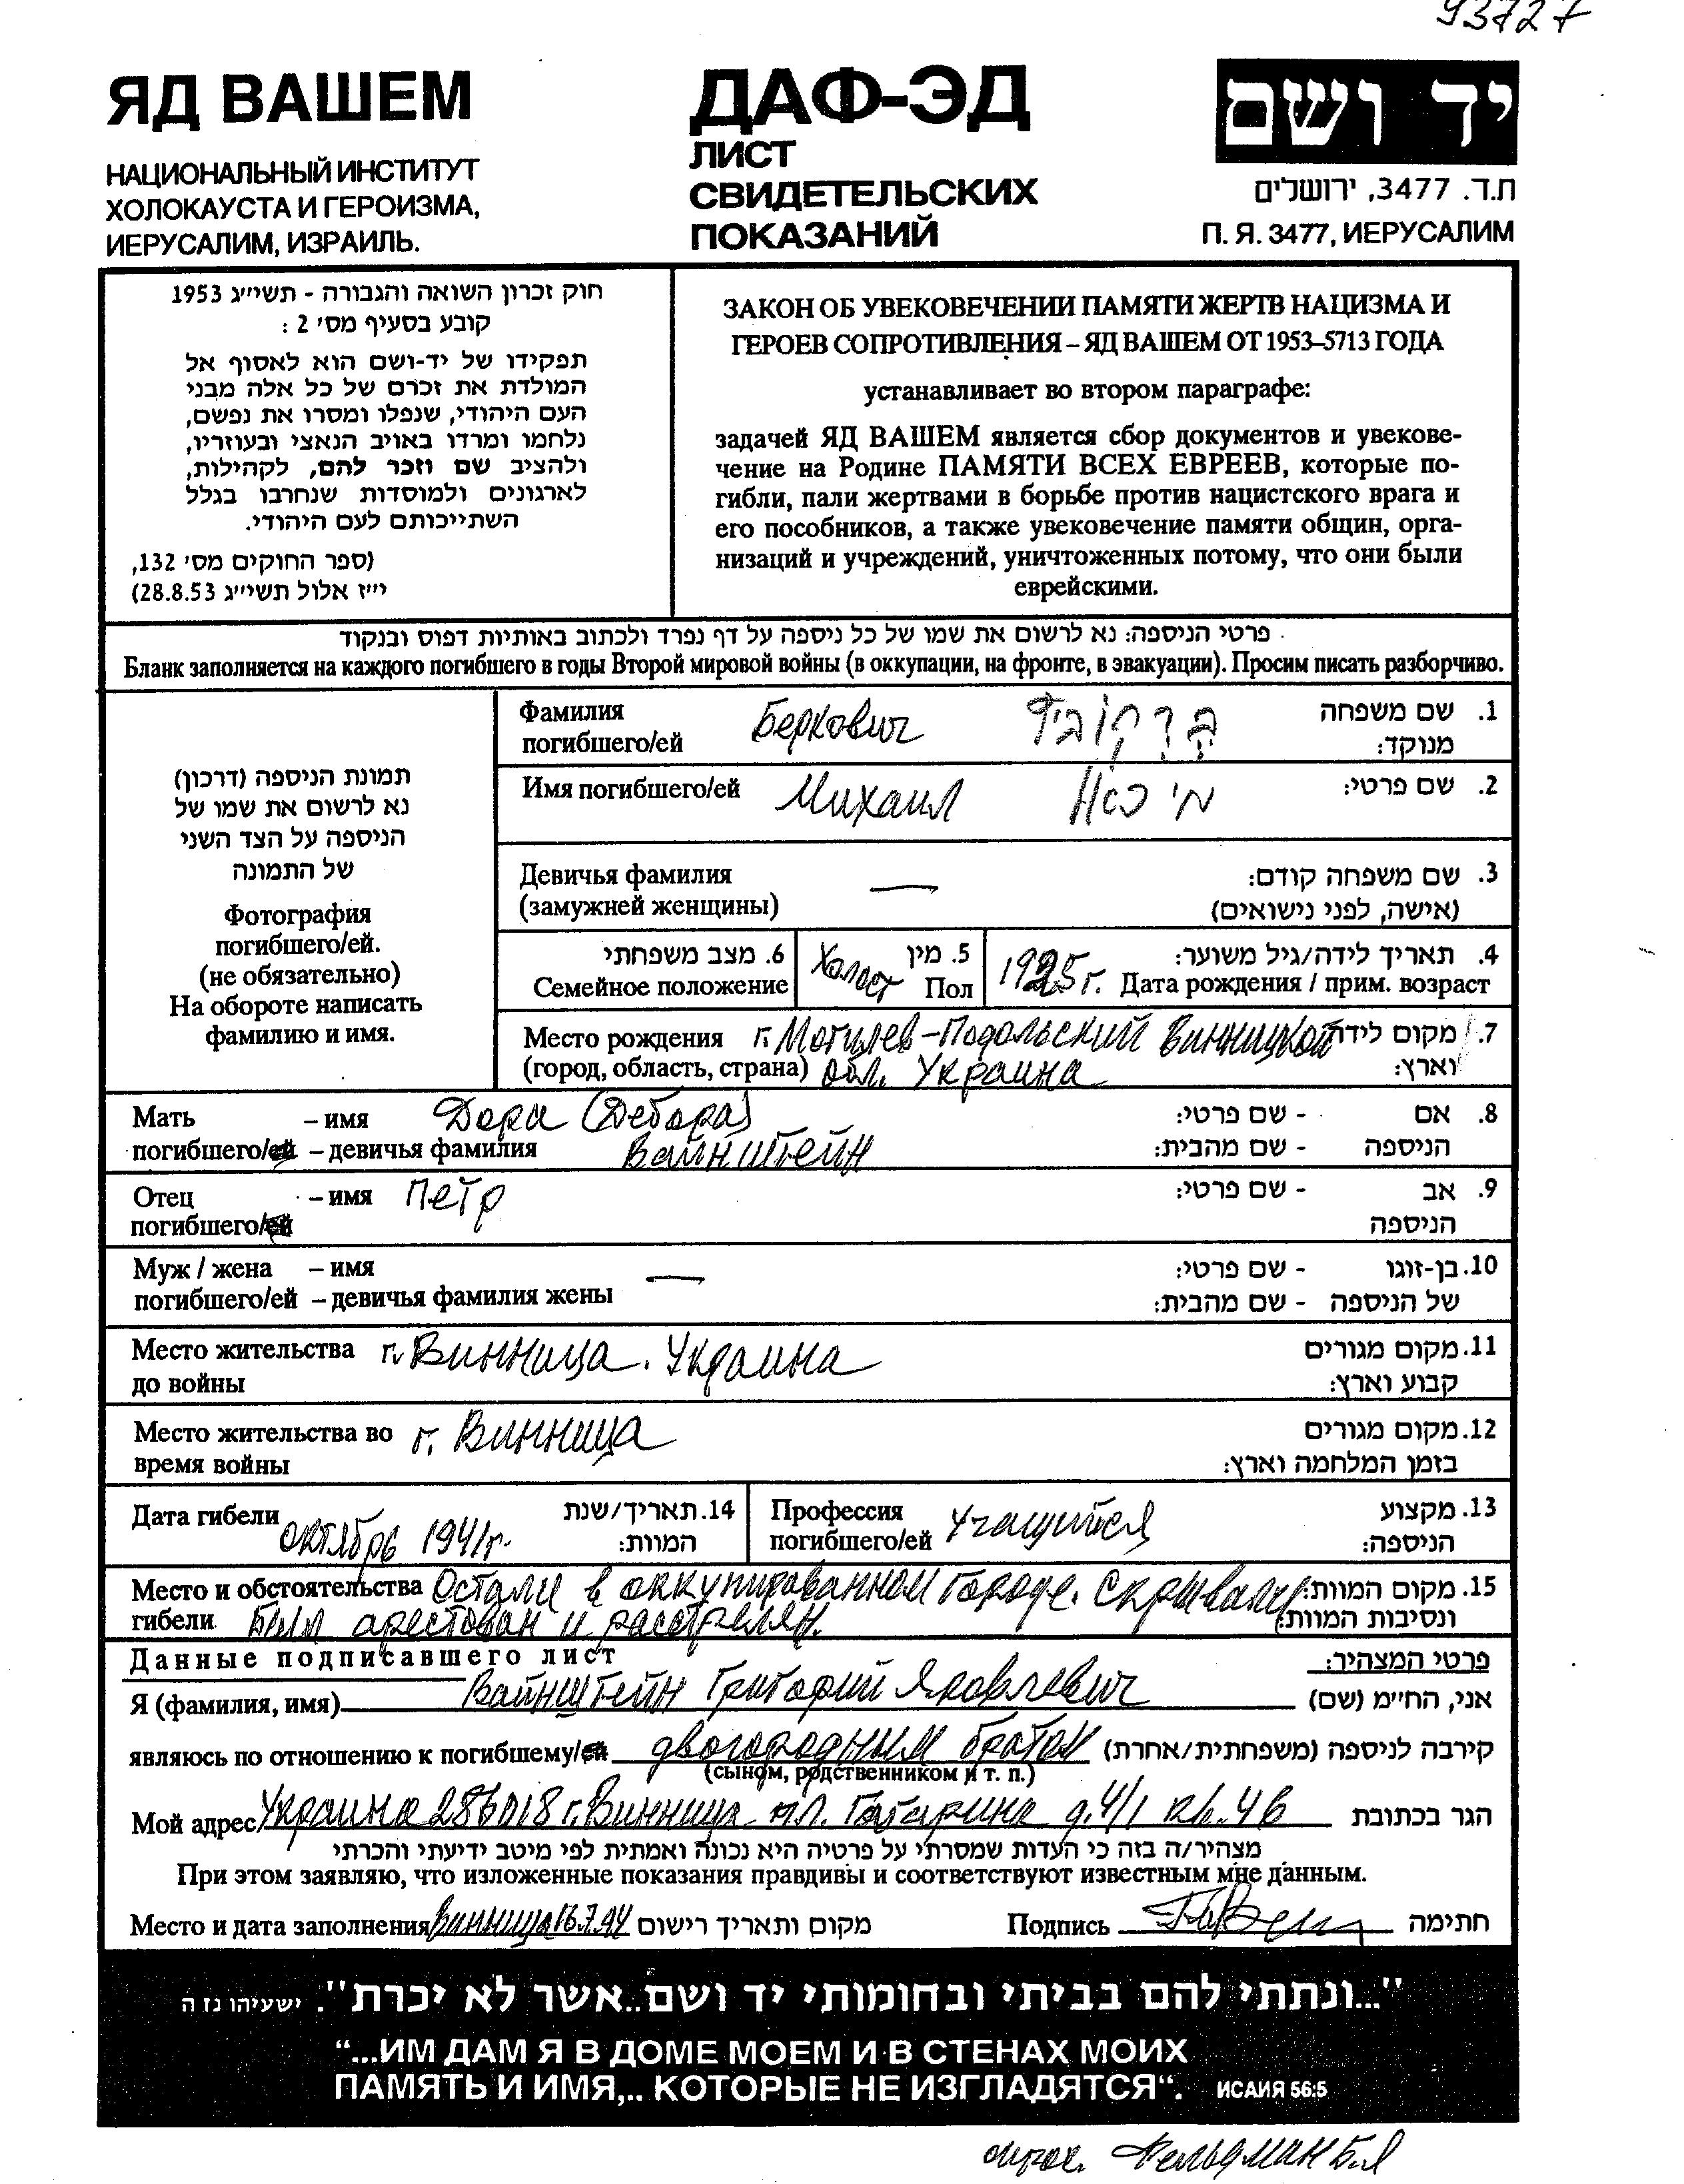 93727
ЯД ВАШЕМ
НАЦИОНАЛЬНЫЙ ИНСТИТУТ
ХОЛОКАУСТА И ГЕРОИЗМА,
ИЕРУСАЛИМ, ИЗРАИЛЬ.
ДАФ-ЭД
ЛИСТ
СВИДЕТЕЛЬСКИХ
ПОКАЗАНИЙ
יד ושם
ת.ד. 3477, ירושלים
П. Я. 3477, ИЕРУСАЛИМ
חוק זכרון השואה והגבורה - תשי״ג 1953
קובע בסעיף מס׳ 2 :
תפקידו של יד-ושם הוא לאסוף אל
המולדת את זכרם של כל אלה מבני
העם היהודי, שנפלו ומסרו את נפשם,
נלחמו ומרדו באויב הנאצי ובעוזריו,
ולהציב שם וזכר להם, לקהילות,
לארגונים ולמוסדות שנחרבו בגלל
השתייכותם לעם היהודי.
(ספר החוקים מס׳ 132,
י״ז אלול תשי״ג 28.8.53)
ЗАКОН ОБ УВЕКОВЕЧЕНИИ ПАМЯТИ ЖЕРТВ НАЦИЗМА И
ГЕРОЕВ СОПРОТИВЛЕНИЯ – ЯД ВАШЕМ ОТ 1953–5713 ГОДА
устанавливает во втором параграфе:
задачей ЯД ВАШЕМ является сбор документов и увекове-
чение на Родине ПАМЯТИ ВСЕХ ЕВРЕЕВ, которые по-
гибли, пали жертвами в борьбе против нацистского врага и
его пособников, а также увековечение памяти общин, орга-
низаций и учреждений, уничтоженных потому, что они были
еврейскими.
פרטי הניספה: נא לרשום את שמו של כל ניספה על דף נפרד ולכתוב באותיות דפוס ובנקוד
Бланк заполняется на каждого погибшего в годы Второй мировой войны (в оккупации, на фронте, в эвакуации). Просим писать разборчиво.
תמונת הניספה (דרכון)
נא לרשום את שמו של
הניספה על הצד השני
של התמונה
Фотография
погибшего/ей.
(не обязательно)
На обороте написать
фамилию и имя.
Фамилия Беркович בֶּרְקוֹבִיץ' 1. שם משפחה
погибшего/ей מנוקד:
Имя погибшего/ей Михаил מיכאל 2. שם פרטי:
Девичья фамилия — 3. שם משפחה קודם:
(замужней женщины) (אישה, לפני נישואים)
6. מצב משפחתי Холост 5. מין 1925 г. 4. תאריך לידה/גיל משוער:
Семейное положение Пол Дата рождения / прим. возраст
Место рождения г. Могилев-Подольский Винницкой 7. מקום לידה
(город, область, страна) обл. Украина וארץ:
Мать – имя Дора (Дебора) 8. אם - שם פרטי:
погибшего/ей – девичья фамилия Вайнштейн הניספה - שם מהבית:
Отец – имя Петр 9. אב - שם פרטי:
погибшего/ей הניספה
Муж / жена – имя — 10. בן-זוגו - שם פרטי:
погибшего/ей – девичья фамилия жены של הניספה - שם מהבית:
Место жительства г. Винница. Украина 11. מקום מגורים
до войны קבוע וארץ:
Место жительства во г. Винница 12. מקום מגורים
время войны בזמן המלחמה וארץ:
Дата гибели октябрь 1941г. 14. תאריך/שנת המוות:
Профессия погибшего/ей учащийся 13. מקצוע הניספה:
Место и обстоятельства Остали в оккупированном городе. Скрывались 15. מקום המוות:
гибели Был арестован и расстрелян. ונסיבות המוות:
Данные подписавшего лист פרטי המצהיר:
Я (фамилия, имя) Вайнштейн Григорий Яковлевич אני, הח״מ (שם)
являюсь по отношению к погибшему/ей двогородным братом קירבה לניספה (משפחתית/אחרת)
(сыном, родственником и т. п.)
Мой адрес Украина 286018 г. Винница пл. Гагарина д. 4/1 кв. 46 הגר בכתובת
מצהיר/ה בזה כי העדות שמסרתי על פרטיה היא נכונה ואמתית לפי מיטב ידיעתי והכרתי
При этом заявляю, что изложенные показания правдивы и соответствуют известным мне данным.
Место и дата заполнения Винница 16.7.94 מקום ותאריך רישום Подпись חתימה
"...ונתתי להם בביתי ובחומותי יד ושם..אשר לא יכרת". ישעיהו נז ה
“...ИМ ДАМ Я В ДОМЕ МОЕМ И В СТЕНАХ МОИХ
ПАМЯТЬ И ИМЯ,.. КОТОРЫЕ НЕ ИЗГЛАДЯТСЯ“. ИСАИЯ 56:5
Фельдман Б.Я